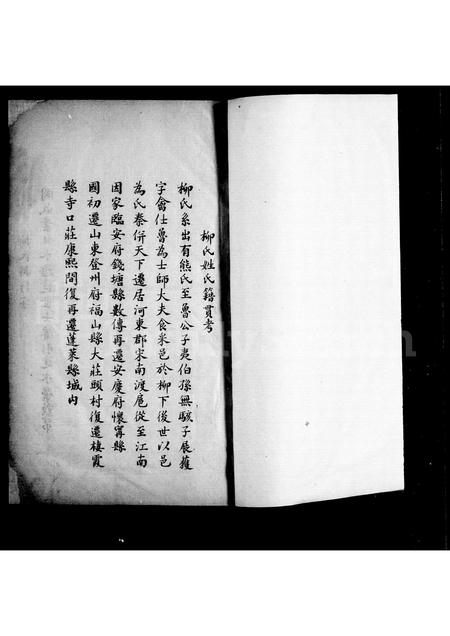 柳氏姓氏籍貫考
柳氏系出有熊氏至魯公子夷伯孫無駭子展獲
字禽仕魯為士師大夫食采邑於柳下後世以邑
為氏秦併天下遷居河東郡宋南渡扈從至江南
因家臨安府錢塘縣數傳再遷安慶府懷甯縣
國初遷山東登州府福山縣大莊頭村復遷棲霞
縣寺口莊康熙間復再遷蓬萊縣城內